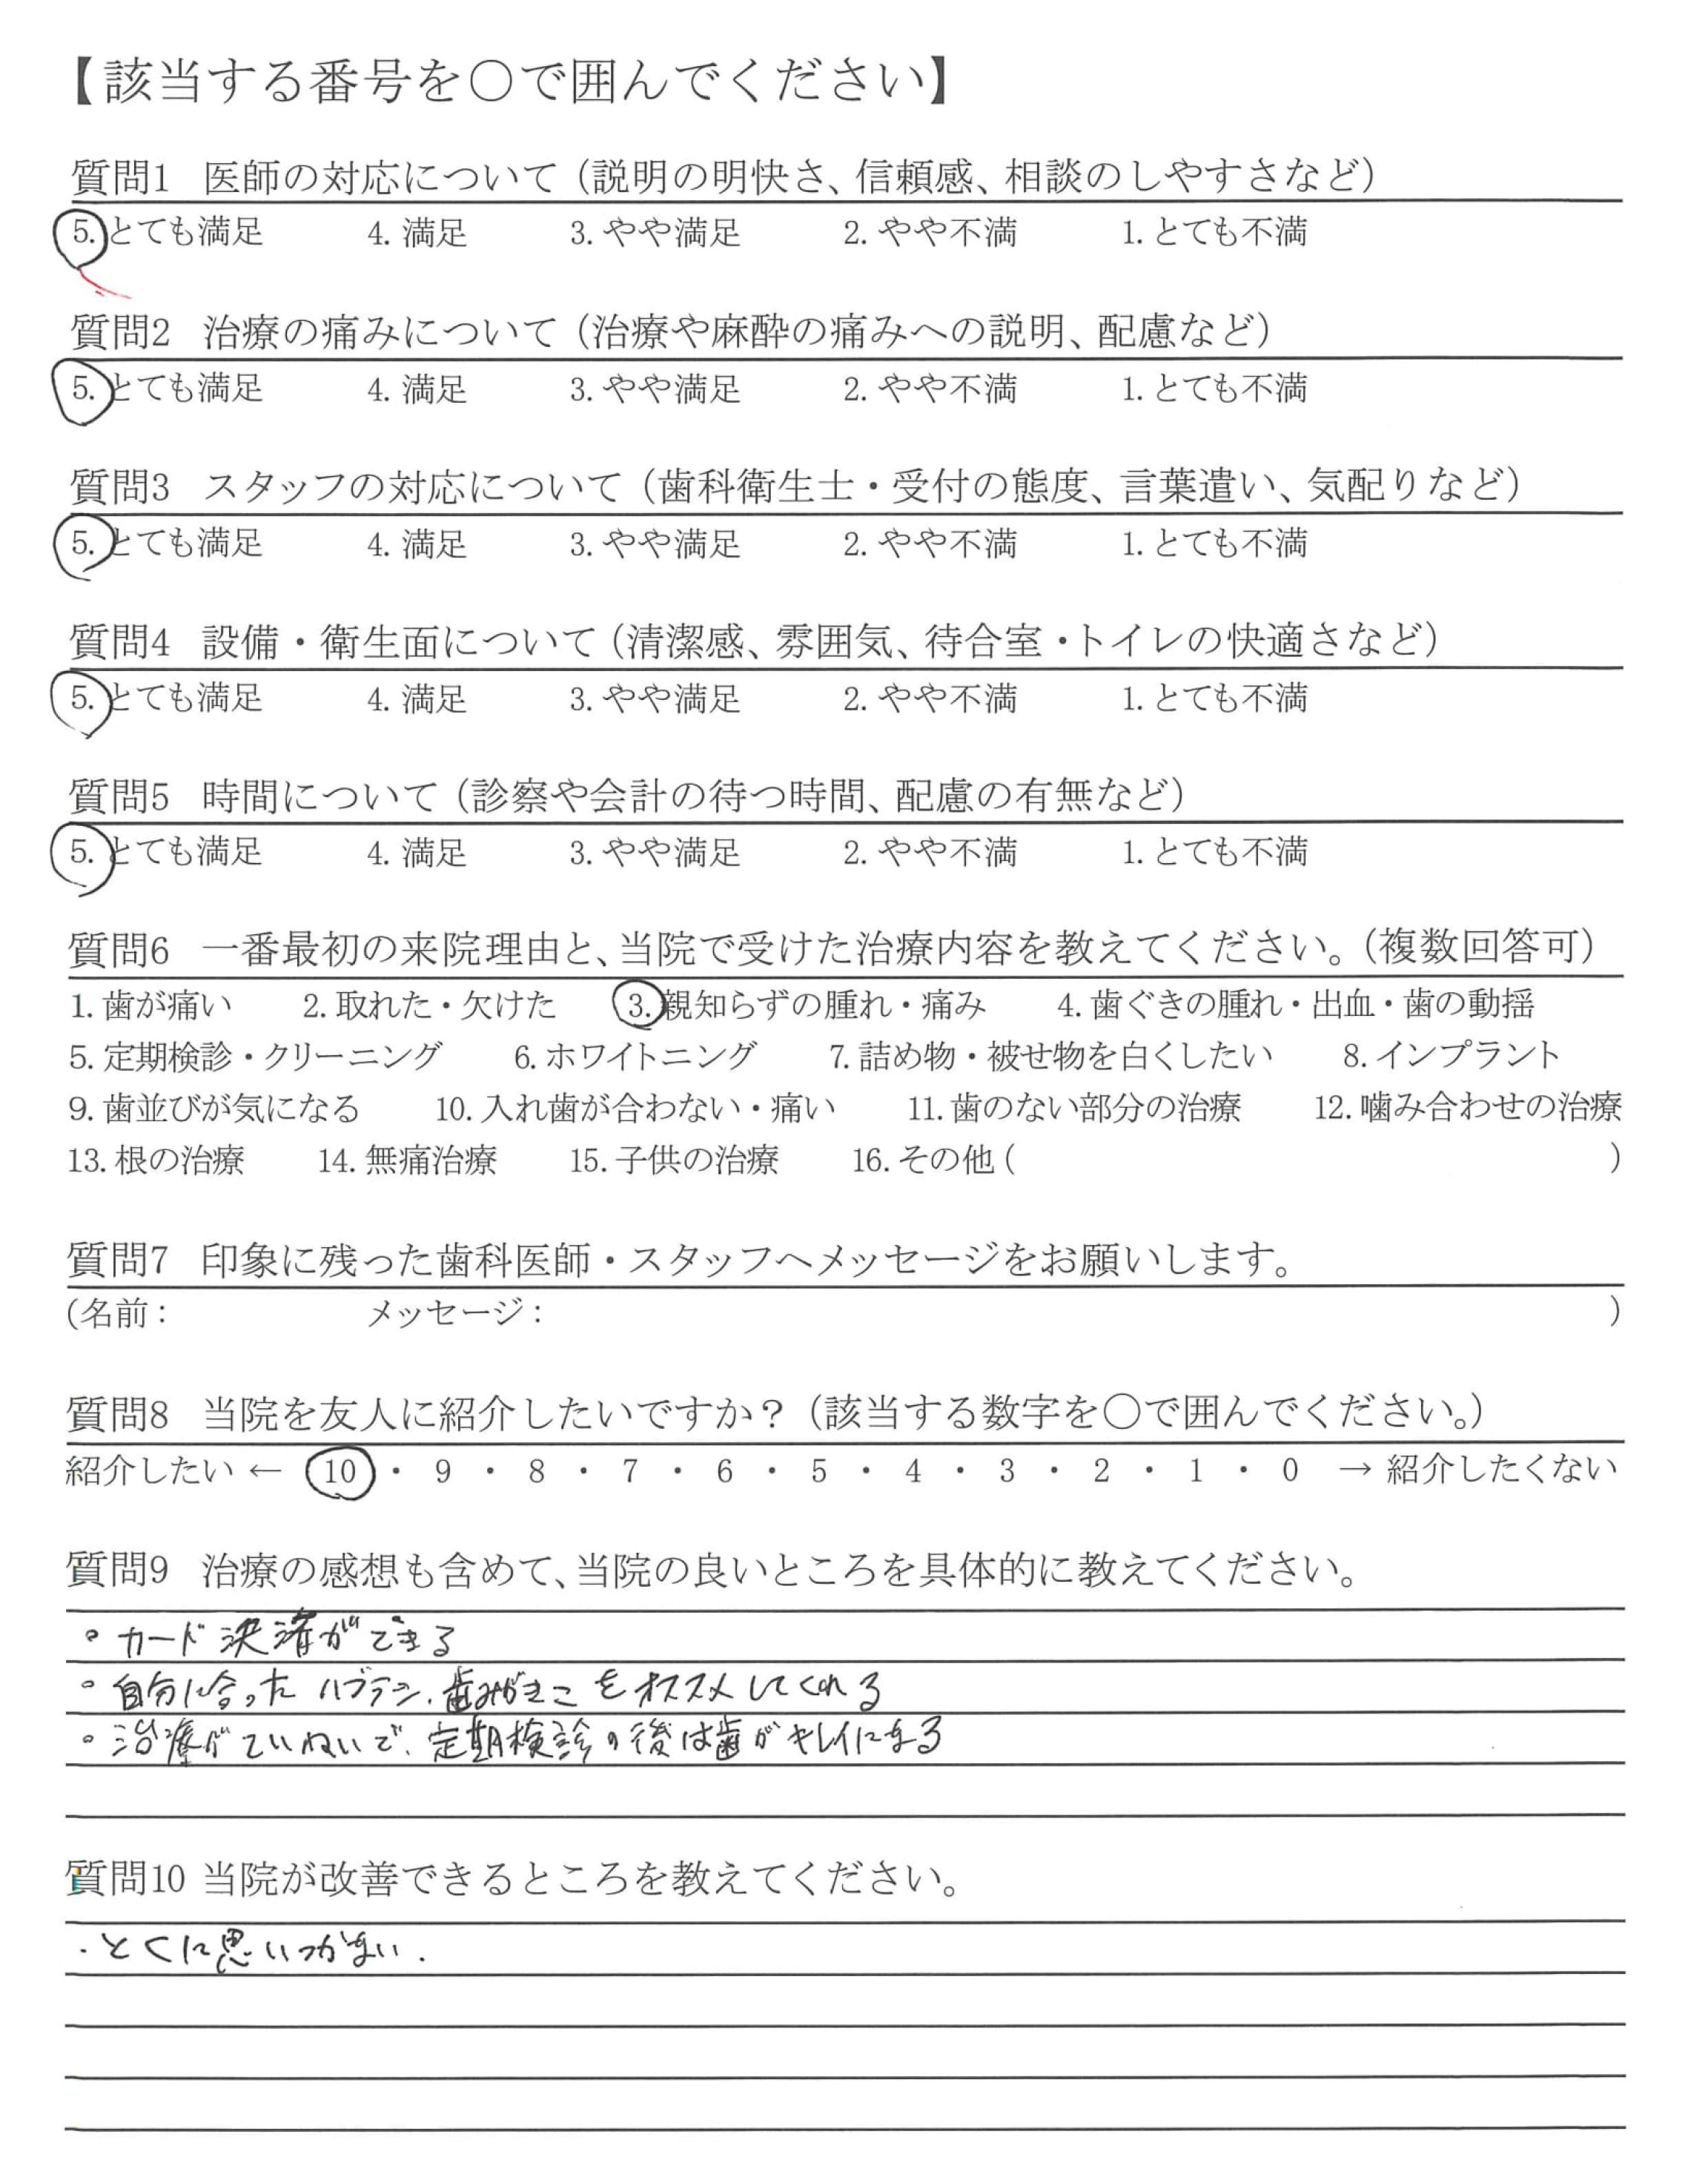 【該当する番号を○で囲んでください】
質問1 医師の対応について（説明の明快さ、信頼感、相談のしやすさなど）
5. とても満足 4. 満足 3. やや満足 2. やや不満 1. とても不満
質問2 治療の痛みについて（治療や麻酔の痛みへの説明、配慮など）
5. とても満足 4. 満足 3. やや満足 2. やや不満 1. とても不満
質問3 スタッフの対応について（歯科衛生士・受付の態度、言葉遣い、気配りなど）
5. とても満足 4. 満足 3. やや満足 2. やや不満 1. とても不満
質問4 設備・衛生面について（清潔感、雰囲気、待合室・トイレの快適さなど）
5. とても満足 4. 満足 3. やや満足 2. やや不満 1. とても不満
質問5 時間について（診察や会計の待つ時間、配慮の有無など）
5. とても満足 4. 満足 3. やや満足 2. やや不満 1. とても不満
質問6 一番最初の来院理由と、当院で受けた治療内容を教えてください。（複数回答可）
1. 歯が痛い 2. 取れた・欠けた 3. 親知らずの腫れ・痛み 4. 歯ぐきの腫れ・出血・歯の動揺
5. 定期検診・クリーニング 6. ホワイトニング 7. 詰め物・被せ物を白くしたい 8. インプラント
9. 歯並びが気になる 10. 入れ歯が合わない・痛い 11. 歯のない部分の治療 12. 噛み合わせの治療
13. 根の治療 14. 無痛治療 15. 子供の治療 16. その他（ ）
質問7 印象に残った歯科医師・スタッフへメッセージをお願いします。
（名前： メッセージ： ）
質問8 当院を友人に紹介したいですか？（該当する数字を○で囲んでください。）
紹介したい ← 10 ・ 9 ・ 8 ・ 7 ・ 6 ・ 5 ・ 4 ・ 3 ・ 2 ・ 1 ・ 0 → 紹介したくない
質問9 治療の感想も含めて、当院の良いところを具体的に教えてください。
。カード決済ができる
。自分に合った ハブラシ、歯みがきこをオススメしてくれる
。治療がていねいで、定期検診の後は歯がキレイになる
質問10 当院が改善できるところを教えてください。
・とくに思いつかない．